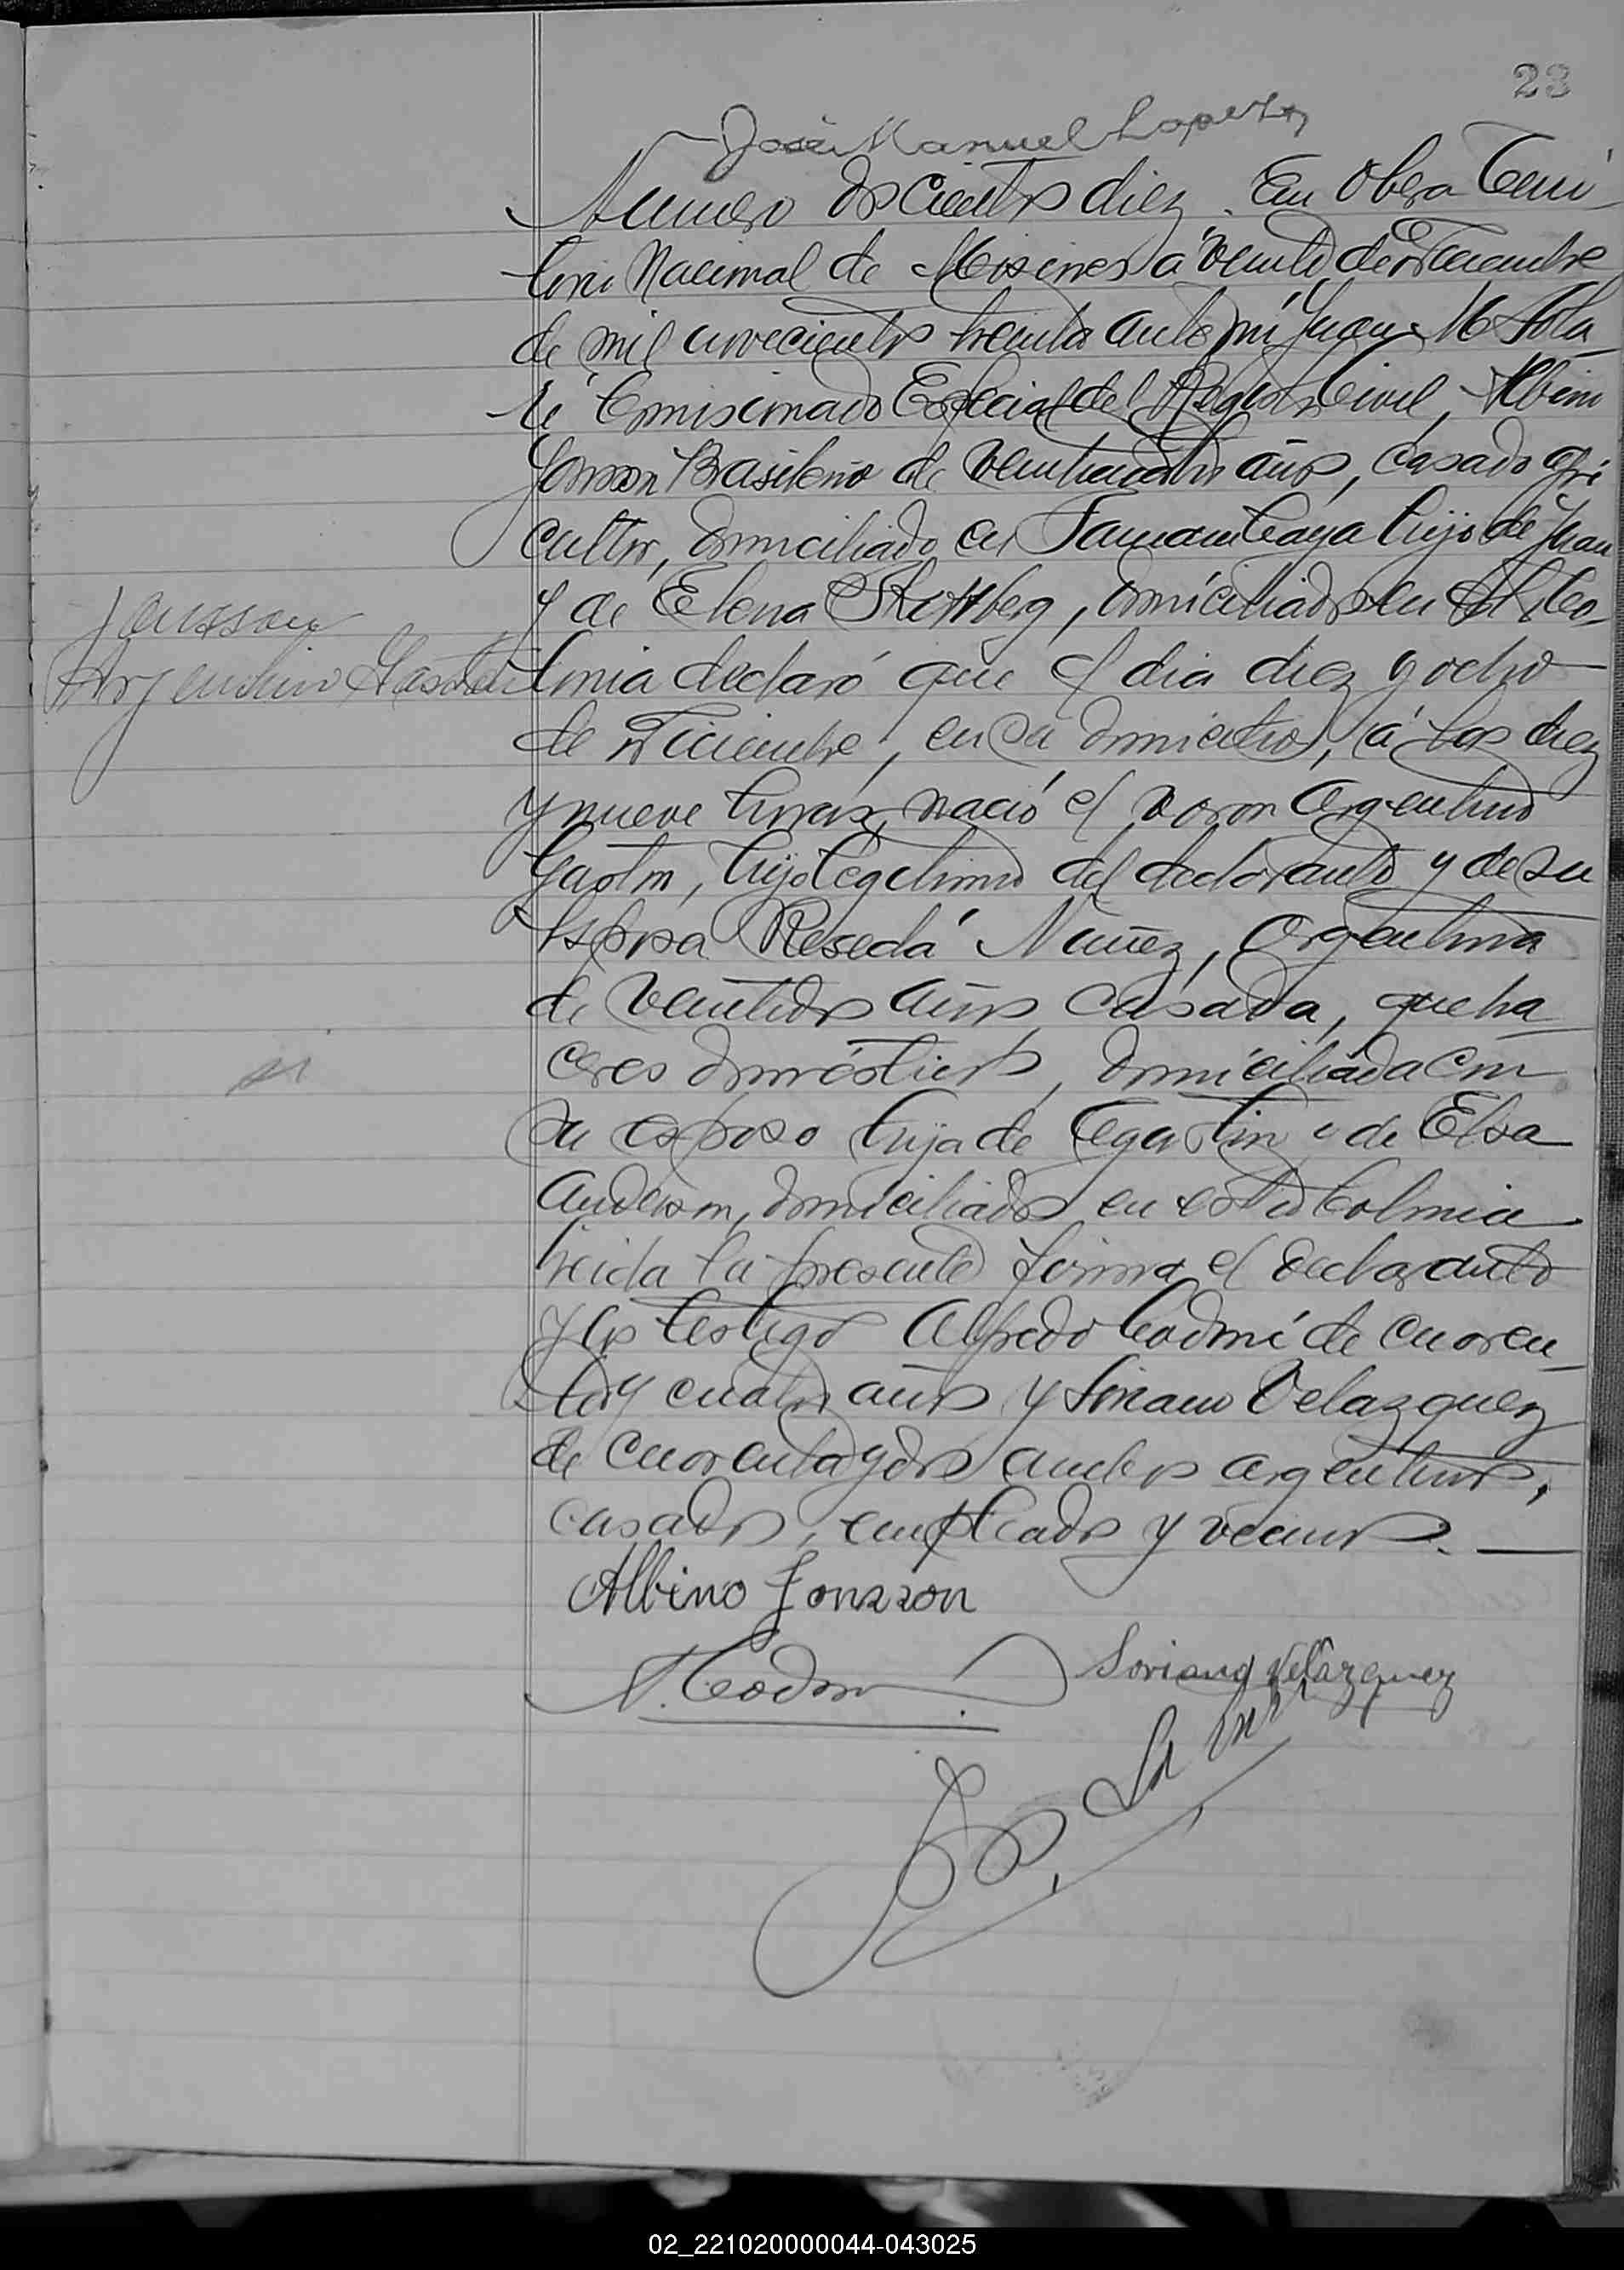 23
José Manuel Lopez
Numero doscientos diez. En Obera Terri
torio Nacional de Misiones a veinte de Diciembre
de mil novecientos treinta ante mi Juan M Sola
ri Comisionado Especial del Registro Civil, Albino
Jonsson Brasileño de veinticuatro años, casado agri
cultor, domiciliado en Yamandeaya hijo de Juan
y de Elena, domiciliados en Co-
Jonsson
Argentino Gaston
lonia declaró que el dia diez y ocho
de Diciembre, en su domicilio, á las diez
y nueve horas, nació el varon Argentino
Gaston, hijo legitimo del declarante y de su
esposa Resedá Nuñez, Argentina
de veintidos años casada, queha
ceres domésticos, domiciliada con
su esposo hija de Agustin y de Elsa
Anderson, domiciliados en esta Colonia
leida la presente firma el declarante
y los testigos Alfredo Codmi de cuaren
ta y cuatro años y Soriano Velazquez
de cuarenta y dos ambos argentinos,
casados, empleados y vecinos.
Albino Jonsson
A. Codmi
Soriano Velazquez
02_221020000044-043025